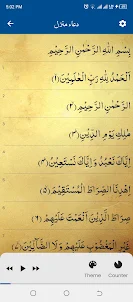 5:02 PM
دعاء منزل
بِسْمِ اللهِ الرَّحْمٰنِ الرَّحِيْمِ
اَلْحَمْدُ لِلّٰهِ رَبِّ الْعٰلَمِيْنَ﴿١﴾
الرَّحْمٰنِ الرَّحِيْمِ﴿٢﴾
مٰلِكِ يَوْمِ الدِّيْنِ﴿٣﴾
اِيَّاكَ نَعْبُدُ وَاِيَّاكَ نَسْتَعِيْنُ﴿٤﴾
اِهْدِنَا الصِّرَاطَ الْمُسْتَقِيْمَ﴿٥﴾
صِرَاطَ الَّذِيْنَ اَنْعَمْتَ عَلَيْهِمْ﴿٦﴾
غَيْرِ الْمَغْضُوْبِ عَلَيْهِمْ وَلَا الضَّآلِّيْنَ﴿٧﴾
Theme Counter